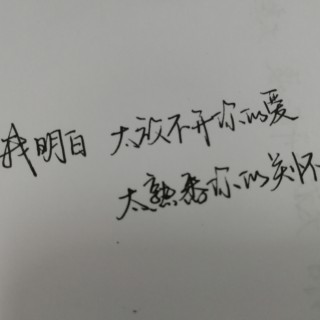 我明白 太放不开你的爱
太熟悉你的关怀